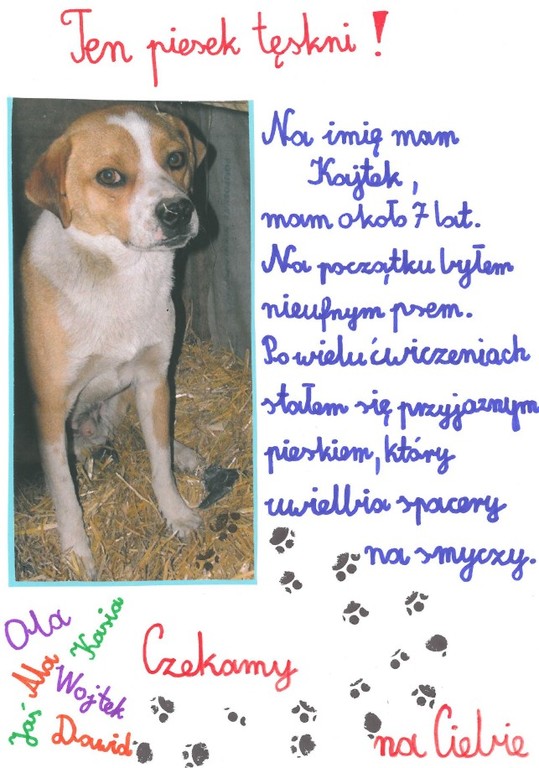 Ten piesek tęskni!
Na imię mam
Kajtek,
mam około 7 lat.
Na początku byłem
nieufnym psem.
Po wielu ćwiczeniach
stałem się przyjaznym
pieskiem, który
uwielbia spacery
na smyczy.
Ola
Kasia
Ala
Wojtek
Jaś
Dawid
Czekamy
na Ciebie